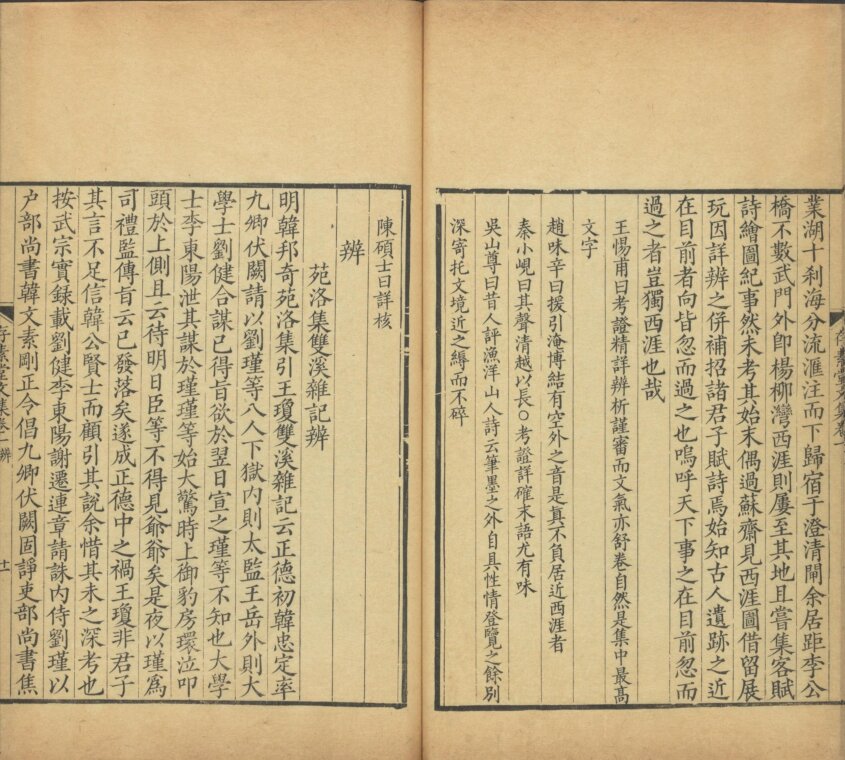 業湖十刹海分流滙注而下歸宿于澄清閘余居距李公
橋不數武門外卽楊柳灣西涯則屢至其地且嘗集客賦
詩繪圖紀事然未考其始末偶過蘇齋見西涯圖借留展
玩因詳辨之併補招諸君子賦詩焉始知古人遺跡之近
在目前者向皆忽而過之也嗚呼天下事之在目前忽而
過之者豈獨西涯也哉
王惕甫曰考證精詳辨析謹審而文氣亦舒卷自然是集中最高
文字
趙味辛曰援引淹博結有空外之音是眞不負居近西涯者
秦小峴曰其聲清越以長○考證詳確末語尤有味
吳山尊曰昔人評漁洋山人詩云筆墨之外自具性情登覽之餘別
深寄托文境近之縟而不碎
陳碩士曰詳核
辨
苑洛集雙溪雜記辨
明韓邦奇苑洛集引王瓊雙溪雜記云正德初韓忠定率
九卿伏闕請以劉瑾等八人下獄內則太監王岳外則大
學士劉健合謀已得旨欲於翌日宣之瑾等不知也大學
士李東陽泄其謀於瑾瑾等始大驚時上御豹房環泣叩
頭於上側且云待明日臣等不得見爺爺矣是夜以瑾爲
司禮監傳旨云已發落矣遂成正德中之禍王瓊非君子
其言不足信韓公賢士而顧引其說余惜其未之深考也
按武宗實錄載劉健李東陽謝遷連章請誅內侍劉瑾以
戶部尚書韓文素剛正令倡九卿伏闕固諍吏部尚書焦
存素堂文集卷二 辨 十一